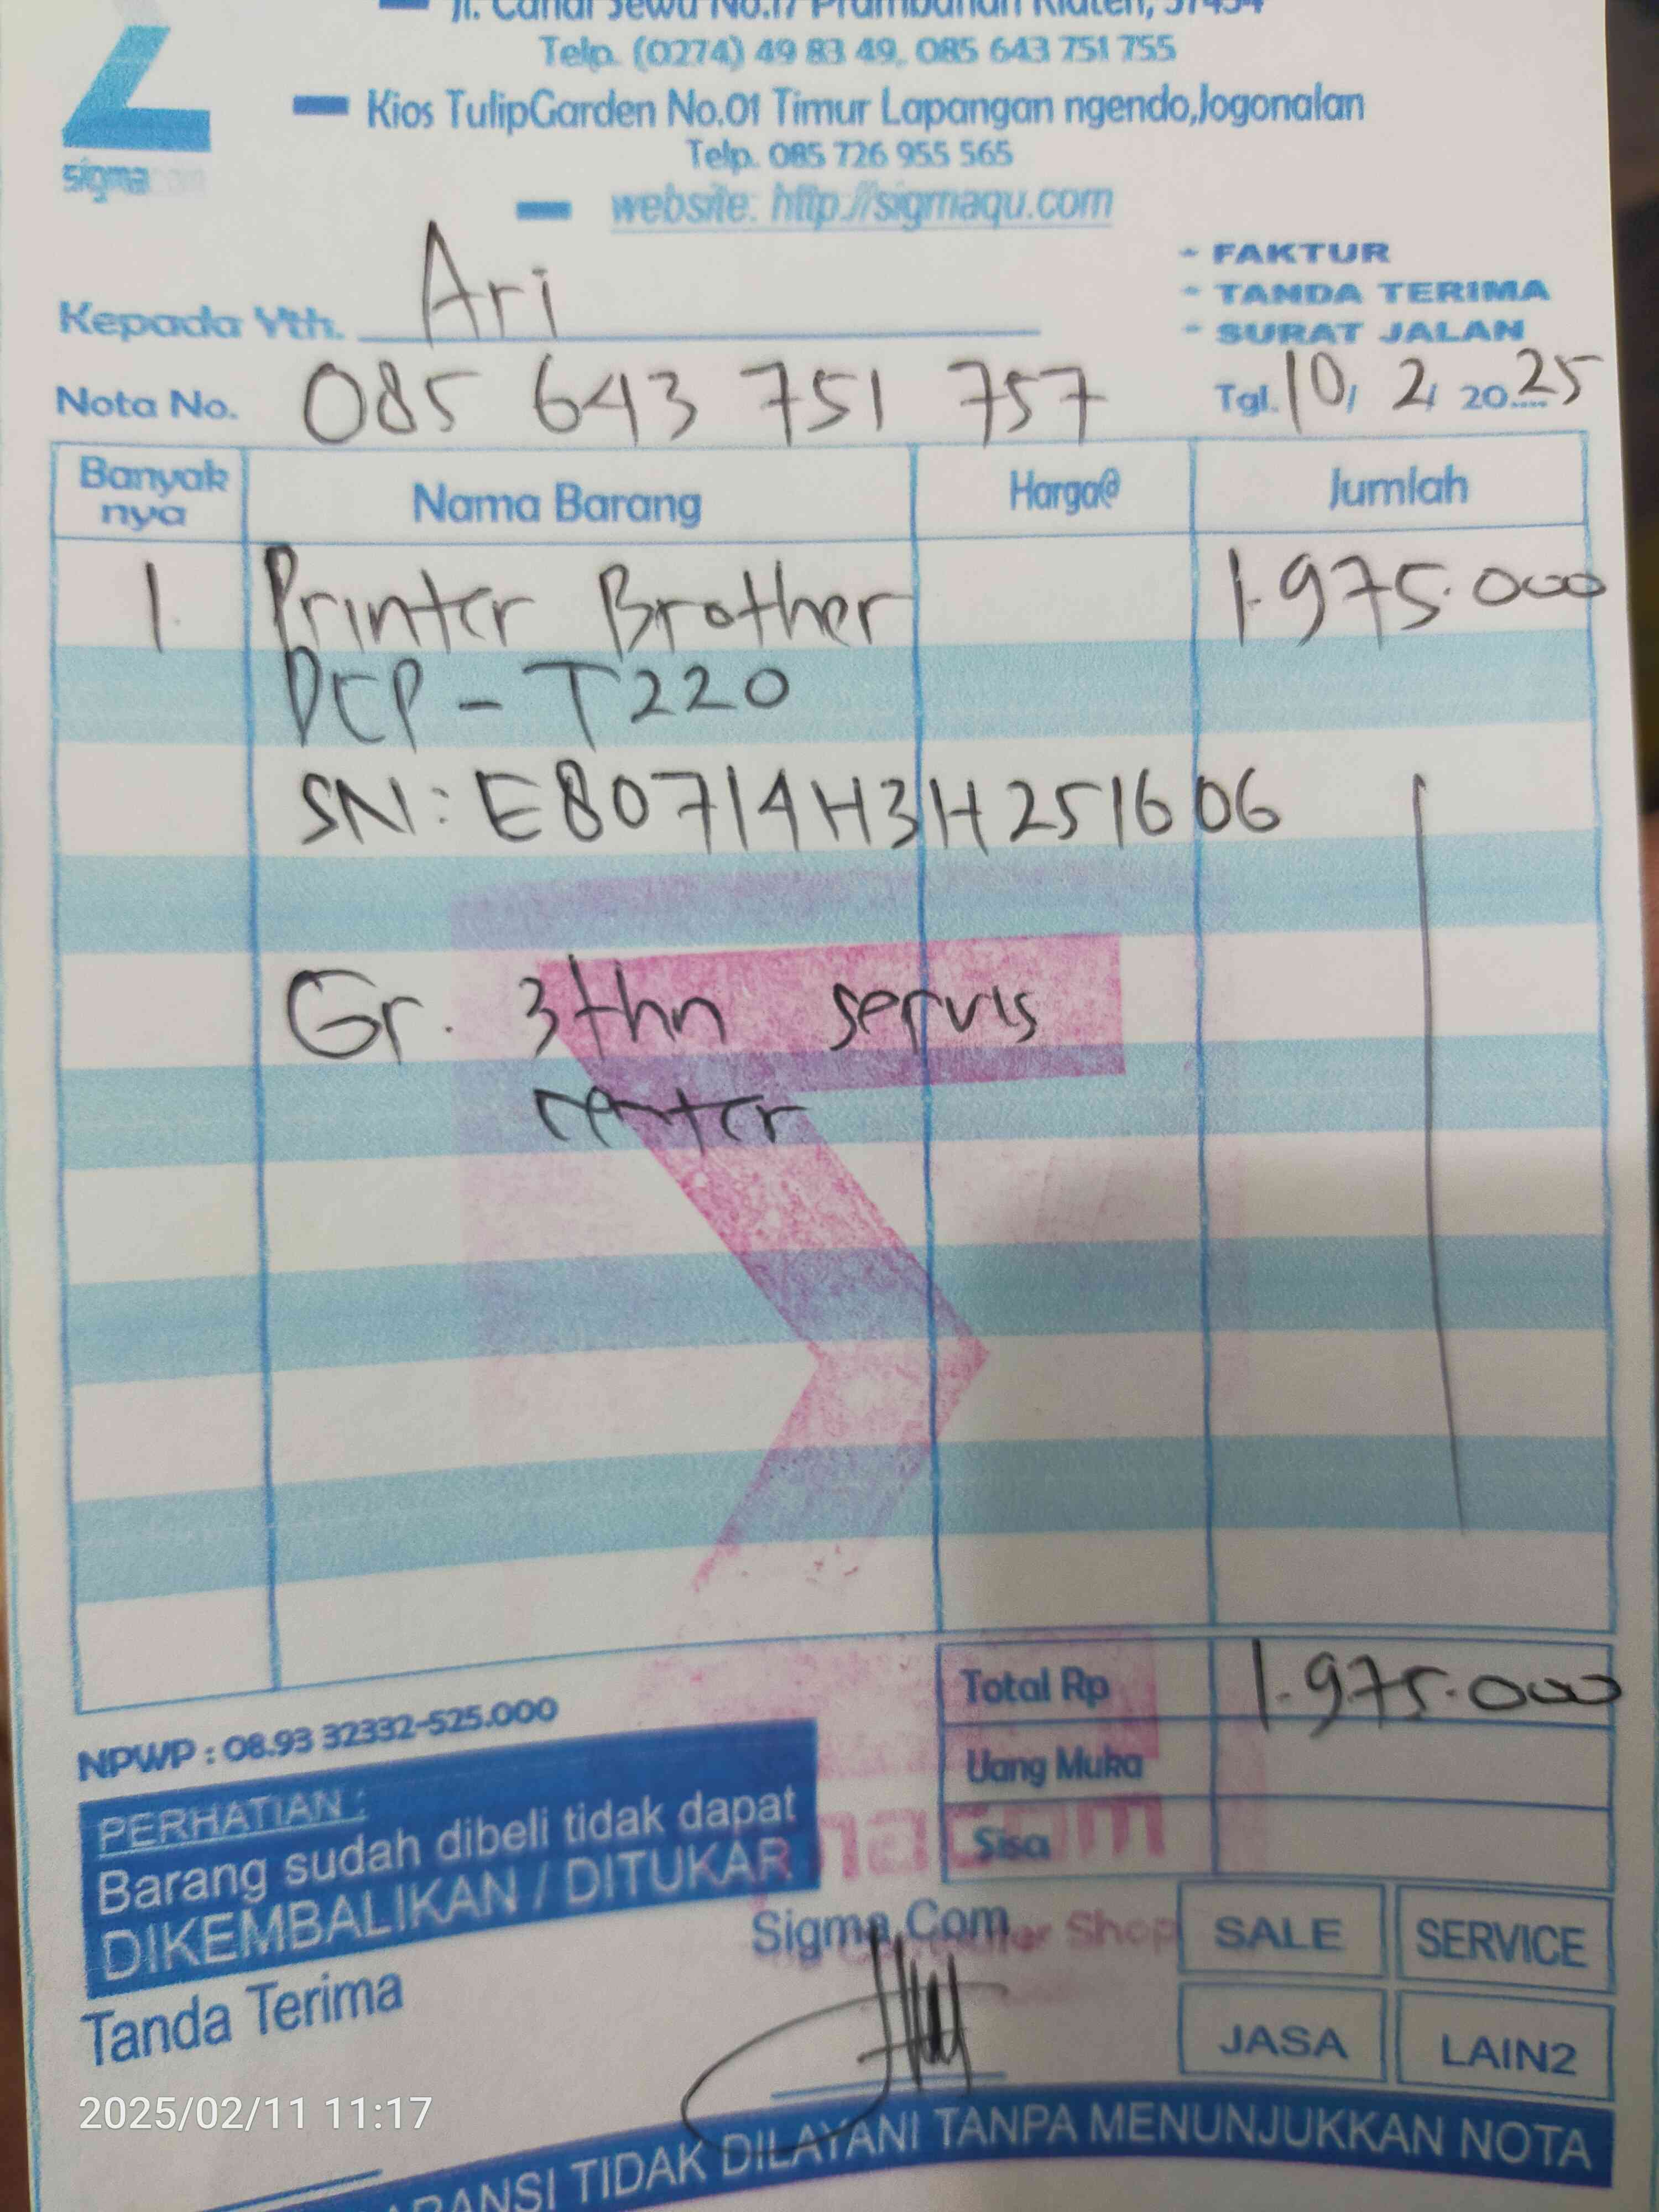 Jl. Candi Sewu No.17 Prambanan Klaten, 57454
Telp. (0274) 49 83 49, 085 643 751 755
Kios TulipGarden No.01 Timur Lapangan ngendo,Jogonalan
Telp. 085 726 955 565
website: http://sigmaqu.com
sigmacom
- FAKTUR
- TANDA TERIMA
- SURAT JALAN
Kepada Yth. Ari
Nota No. 085 643 751 757
Tgl. 10/ 2/ 20....25
Banyak nya Nama Barang Harga@ Jumlah
1. Printer Brother 1.975.000
DCP - T220
SN: E80714H3H251606
Gr. 3 thn servis
center
Total Rp 1.975.000
Uang Muka
Sisa
NPWP : 08.93 32332-525.000
PERHATIAN :
Barang sudah dibeli tidak dapat
DIKEMBALIKAN / DITUKAR
Tanda Terima
Sigma.Com
Shop
SALE SERVICE
JASA LAIN2
2025/02/11 11:17
TIDAK DILAYANI TANPA MENUNJUKKAN NOTA